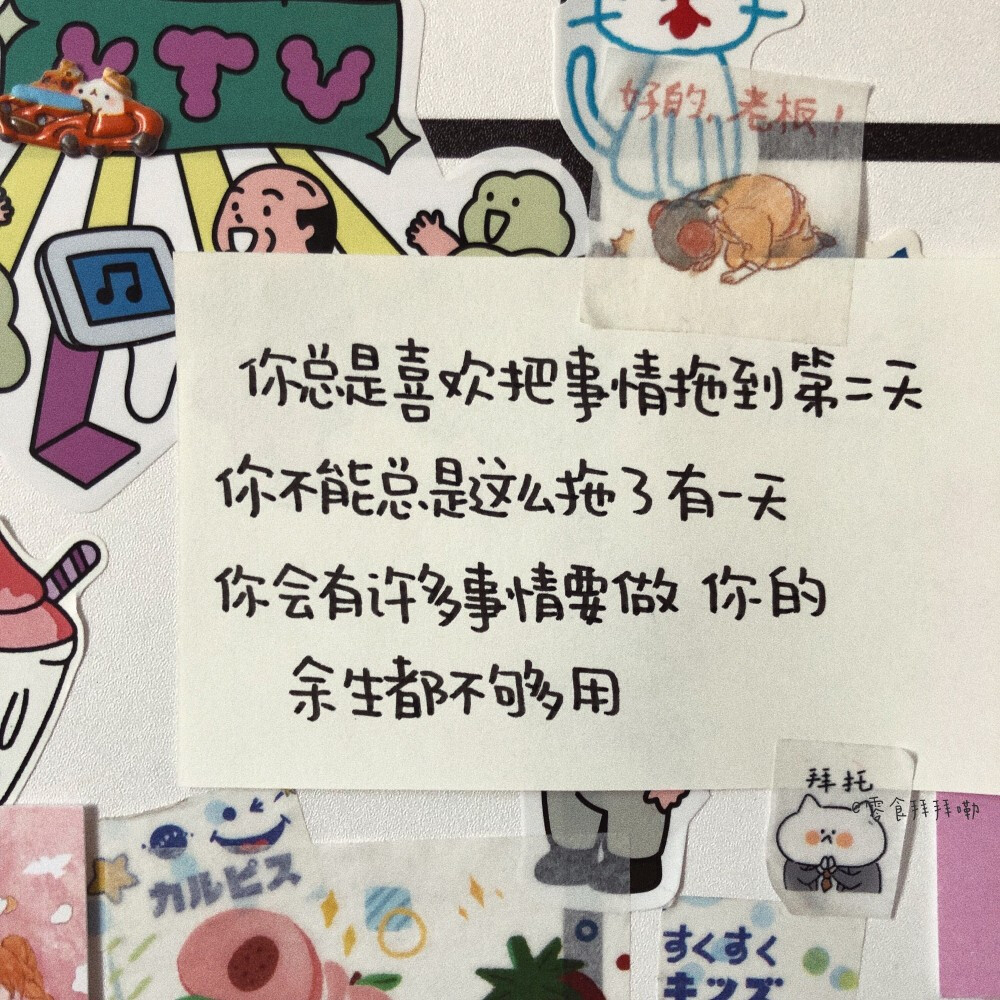 KTV
好的，老板！
你总是喜欢把事情拖到第二天
你不能总是这么拖了有一天
你会有许多事情要做 你的
余生都不够多用
拜托
@零食拜拜嘞
カルピス
すくすく
キッズ